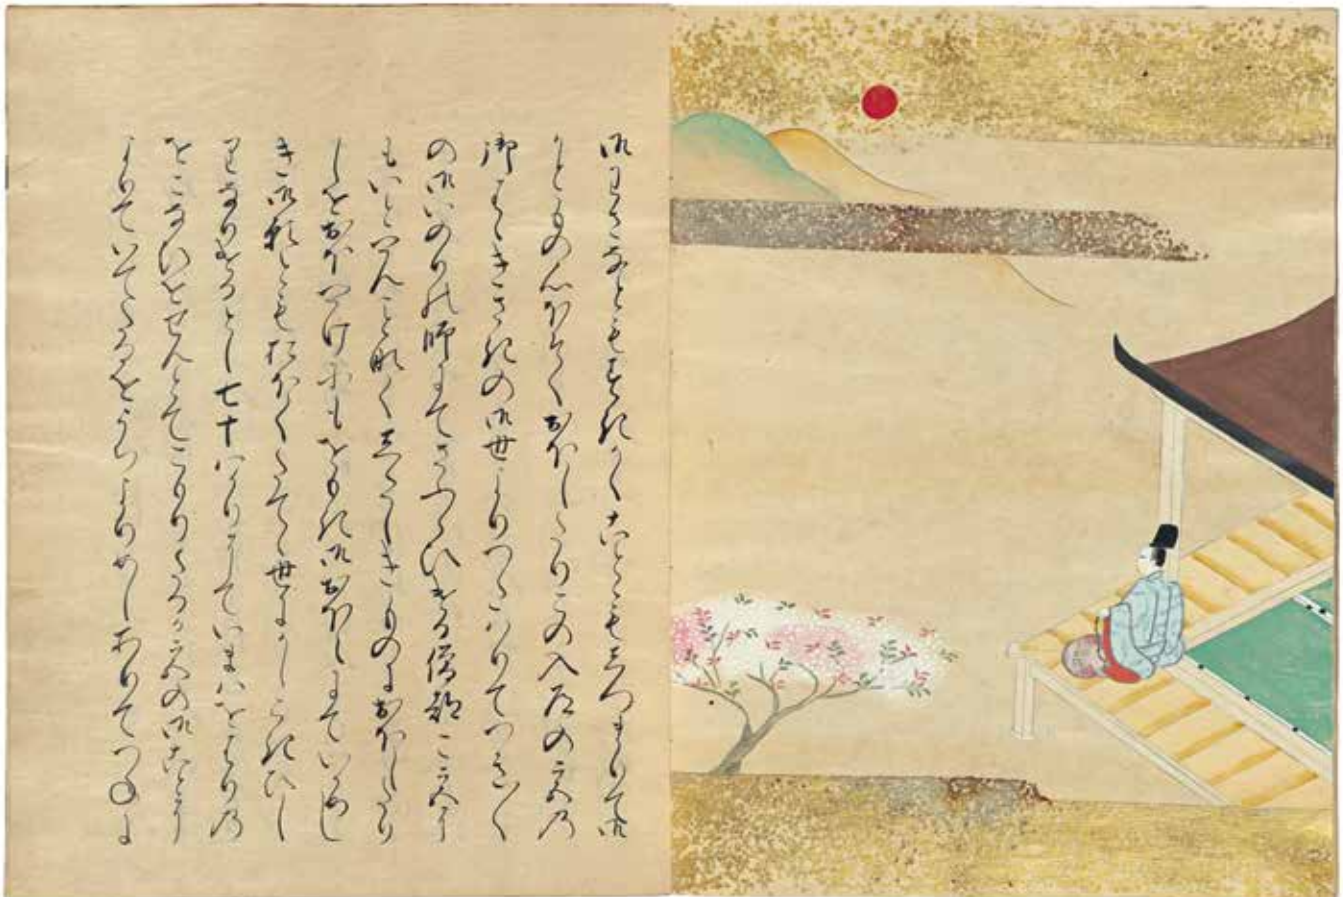 御わさなともすきてことともしつまりて御
かともの心ほそくおほしたりこの入道の宮の
御はゝきさきの御世よりつたはりてつき〱
の御いのりの師にてさふらひける僧都こ宮に
もいとやんことなくしたしきものにおほしたり
しをおほやけにもをもき御おほえにていかめし
き御願ともおほくたてゝ世にかしこきひし
りなりけるとし七十はかりにていまはをはりの
をこなひをせんとてこもりたるか宮の御ことに
よりていてたるをうちよりめしありてつねに